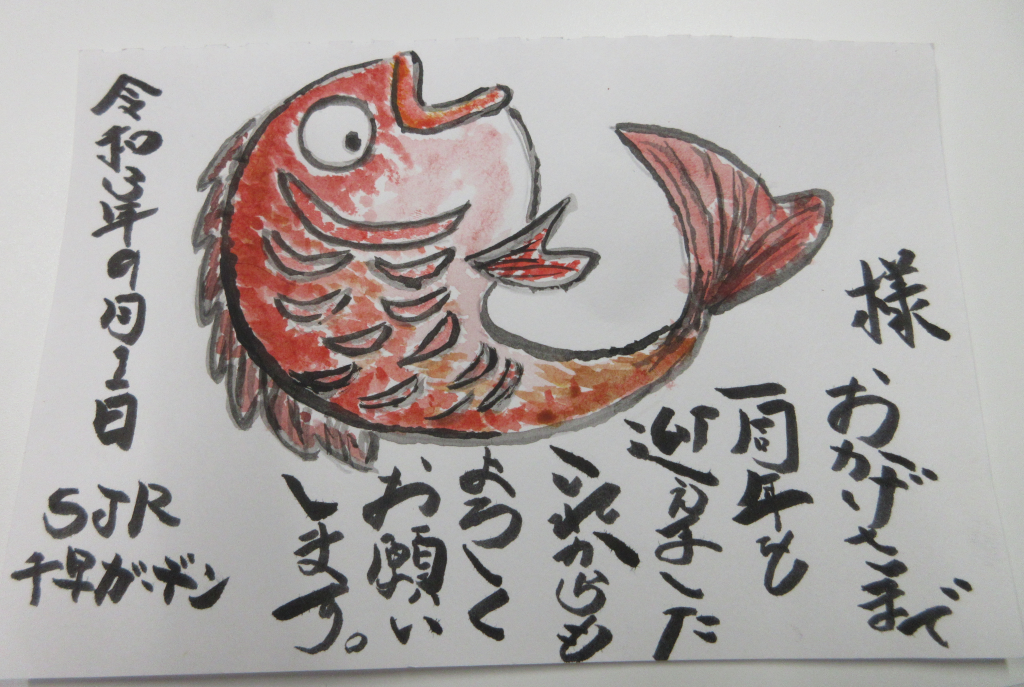 様
おかげさまで
一周年も
迎えました
これからも
よろしく
お願い
します。
令和年9月1日
SJR
千早ガーデン